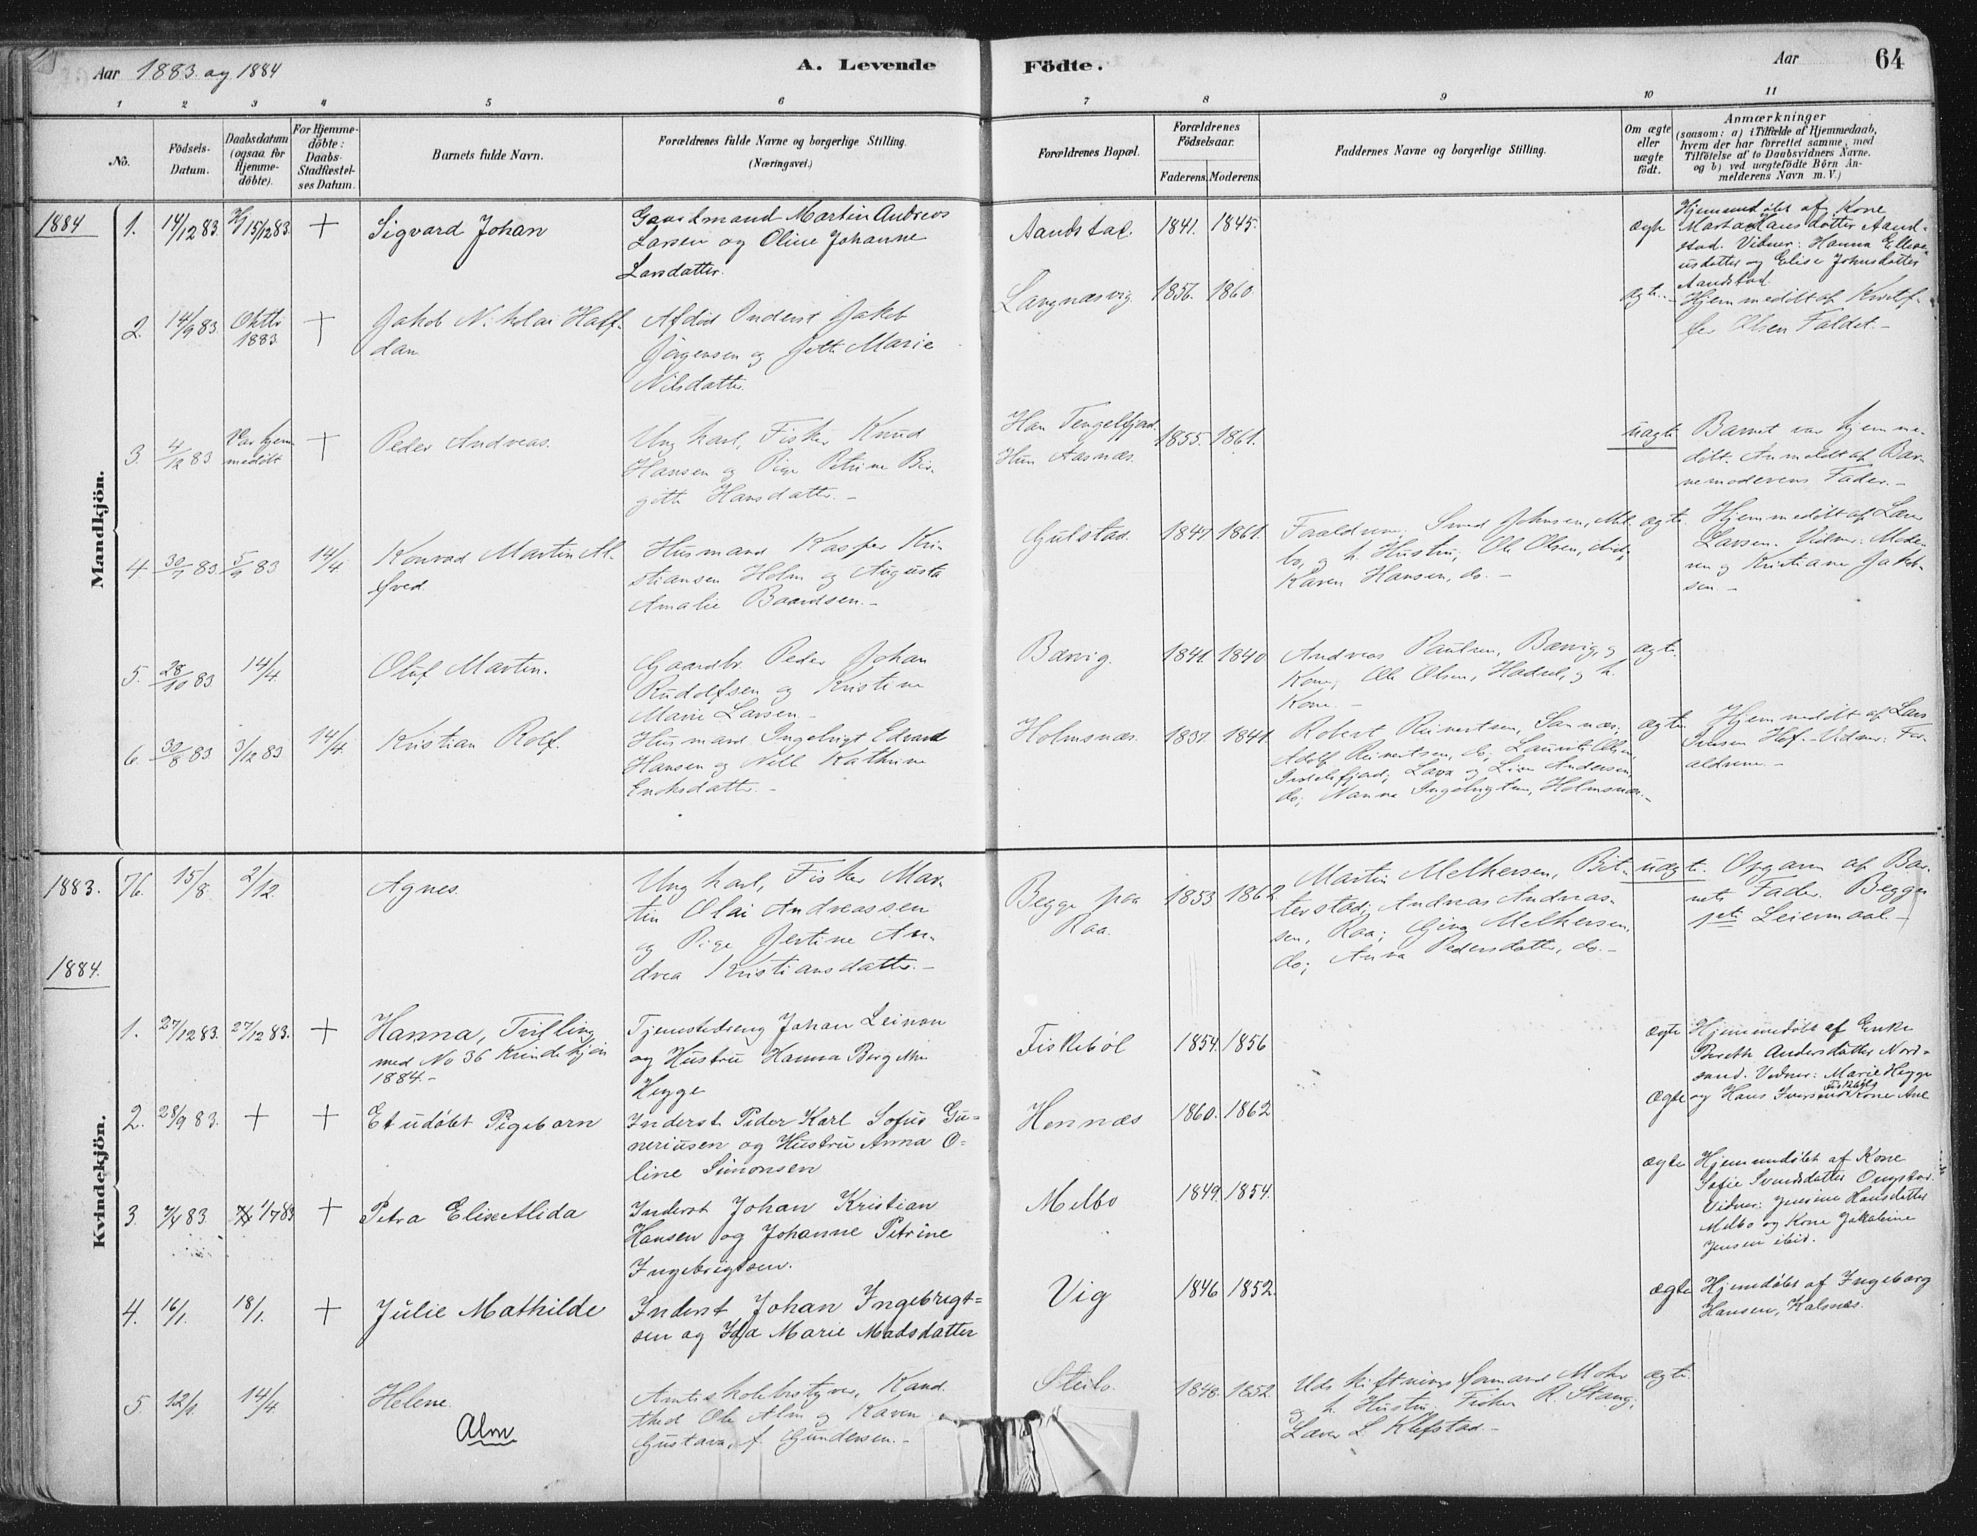 Aar 1883 og 1884
A. Levende Födte.
Aar
64
1 2 3 4 5 6 7 8 9 10 11
No.
Födsels-Datum.
Daabsdatum (ogsaa for Hjemme-döbte).
For Hjemme-döbte: Daabs-Stadfæstel-ses Datum.
Barnets fulde Navn.
Forældrenes fulde Navne og borgerlige Stilling.
(Næringsvei.)
Forældrenes Bopæl.
Forældrenes Födselsaar.
Faderens. Moderens.
Faddernes Navne og borgerlige Stilling.
Om ægte eller uægte födt.
Anmærkninger
(saasom: a) i Tilfælde af Hjemmedaab,
hvem der har forrettet samme, med
Tilföielse af to Daabsvidners Navne.
og b) ved uægtefödte Börn An-
melderens Navn m. V.)
Mandkjön.
1884
1. 14/12 83. Hj 15/12 83. + Sigvard Johan
Gaardmand Martin Andreas
Larsen og Oline Johanne
Larsdatter.
Aandstad. 1841. 1845.
ægte
Hjemmedøbt af Kone
Marta Hansdatter Aand-
stad. Vidner: Hanna Ellevs
usdatter og Elise Johnsdatter
Aandstad
2. 14/9 83 Oktbr 1883 + Jakob Nikolai Half-
dan
Afdød Inderst Jakob
Jørgensen og Jette Marie
Nilsdatter.
Langnæsvig. 1856. 1860.
ægte.
Hjemmedøbt af Kristof-
fer Olsen Faldet.-
3. 4/12 83 Var hjem-
medöbt + Peder Andreas.
Ungkarl, Fisker Knud
Hansen og Pige Petrine Bir-
gitte Hansdatter.-
Han Tengelfjord.
Hun Aasnæs. 1855. 1861.
uægte.
Barnet var hjemme-
döbt. Anmeldt af Bar-
nemoderens Fader.-
4 30/7 83 5/9 83 14/4 Konrad Martin Al-
fred.
Husmand Kasper Kri-
stiansen Holm og Augusta
Amalie Baardsen.-
Gulstad. 1847 1861.
Forældrene; Smed Johnsen, Mel-
bo, og h. Hustru; Ole Olsen, ibid;
Karen Hansen, do.-
ægte
Hjemmedøbt af Lars
Larsen. Vidner: Mode-
ren og Kristiane Jakob-
sen-
5. 28/10 83 14/4. Oluf Martin.
Gaardbr. Peder Johan
Rudolfsen og Kristine
Marie Larsen.-
Bærvig. 1841. 1840
Andreas Paulsen, Bærvig, og
Kone; Ole Olsen, Hadsel, og h.
Kone.-
ægte.
6. 30/8 83 3/12 83 14/4. Kristian Rolf.
Husmand Ingebrigt Edvard
Hansen og Nille Kathrine
Enoksdatter.-
Holmsnæs. 1837 1841.
Robert Reinertsen, Sannæs;
Adolf Reinertsen, do; Laurits Olsen,
Lava og Lise Andersen,
do; Nanna Ingebrigtsen, Holmsnæs.-
ægte
Hjemmedøbt af Lars
Iversen Hof.- Vidner: For-
ældrene.-
Kvindekjön.
1883. 76. 15/8. 2/12 Agnes.
Ungkarl, Fisker Mar-
tin Olai Andreassen
og Pige Jertine An-
drea Kristiansdatter.-
Begge paa
Raa. 1853 1862
Martin Melkersen, Bit-
terstad; Andreas Andreas-
sen, Raa; Gina Melkersen,
do; Anna Pedersdatter, do.-
uægte.
Opgave af Bar-
nets Fader. Begges
1ste Leiermaal.-
1884.
1. 27/12 83. 27/12 83. + Hanna, Tvilling
med No 36 Kvindekjøn
1884.-
Tjenestedreng Johan Leinan
og Hustru Hanna Bergitte
Hegge
Fiskebøl 1854. 1856
ægte
Hjemmedøbt af Enke
Bereth Andersdatter Nord-
sand. Vidner: Marie Hegge
og Hans Iversens Kone Ane
Fiskebøl
2. 28/9 83. + + Et udøbt Pigebarn
Inderst Peder Karl Sofus Gu-
neriusen og Hustru Anna O-
line Simonsen
Hennæs 1860. 1862
ægte
3. 7/4 83. 1/7 83 + Petra Elise Alida
Inderst Johan Kristian
Hansen og Johanne Petrine
Ingebrigtsen.
Melbo 1849. 1854.
ægte
Hjemmedøbt af Kone
Sofie Svendsdatter Ongstad.
Vidner: Jensine Hansdatter
Melbo og Kone Jakobine
Jensen ibid.
4. 16/1. 18/1. + Julie Mathilde
Inderst Johan Ingebrigt-
sen og Ida Marie Madsdatter
Vig 1846 1852.
ægte
Hjemdøbt af Ingeborg
Hansen, Kalsnæs.
5 12/1. 14/4. Helene.
Alm
Amtsskolebestyrer, Kand.
theol Ole Alm og Karen
Gustava, f. Gundersen.-
Steilo. 1848. 1852.
Udskiftningsformand Mohr
og h. Hustru; Fisker R. Stang;
Lærer L. Klefstad.-
ægte.